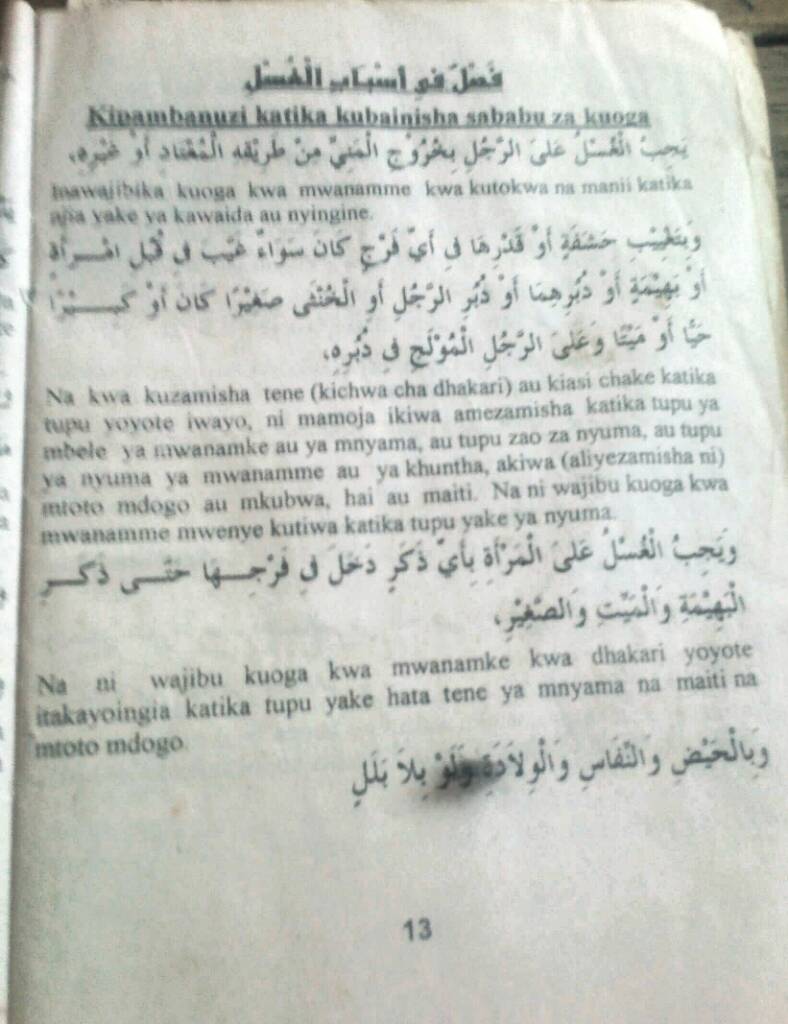 فَصْلٌ فِي أَسْبَابِ الْغُسْلِ
Kipambanuzi katika kubainisha sababu za kuoga
يَجِبُ الْغُسْلُ عَلَى الرَّجُلِ بِخُرُوْجِ الْمَنِيِّ مِنْ طَرِيْقِهِ الْمُعْتَادِ أَوْ غَيْرِهِ،
inawajibika kuoga kwa mwanamme kwa kutokwa na manii katika
njia yake ya kawaida au nyingine.
وَبِتَغْيِيْبِ حَشَفَةٍ أَوْ قَدْرِهَا فِي أَيِّ فَرْجٍ كَانَ سَوَاءٌ غَيَّبَ فِي قُبُلِ امْـرَأَةٍ
أَوْ بَهِيْمَةٍ أَوْ دُبُرِهِمَا أَوْ دُبُرِ الرَّجُلِ أَوِ الْخُنْثَى صَغِيْرًا كَانَ أَوْ كَبِـــيْرًا
حَيًّا أَوْ مَيِّتًا وَعَلَى الرَّجُلِ الْمُوْلَجِ فِي دُبُرِهِ،
Na kwa kuzamisha tene (kichwa cha dhakari) au kiasi chake katika
tupu yoyote iwayo, ni mamoja ikiwa amezamisha katika tupu ya
mbele ya mwanamke au ya mnyama, au tupu zao za nyuma, au tupu
ya nyuma ya mwanamme au ya khuntha, akiwa (aliyezamisha ni)
mtoto mdogo au mkubwa, hai au maiti. Na ni wajibu kuoga kwa
mwanamme mwenye kutiwa katika tupu yake ya nyuma.
وَيَجِبُ الْغُسْلُ عَلَى الْمَرْأَةِ بِأَيِّ ذَكَرٍ دَخَلَ فِي فَرْجِـــهَا حَتَّـــى ذَكَـــرِ
الْبَهِيْمَةِ وَالْمَيِّتِ وَالصَّغِيْرِ،
Na ni wajibu kuoga kwa mwanamke kwa dhakari yoyote
itakayoingia katika tupu yake hata tene ya mnyama na maiti na
mtoto mdogo
وَبِالْحَيْضِ وَالنِّفَاسِ وَالْوِلاَدَةِ وَلَوْ بِلاَ بَلَلٍ
13